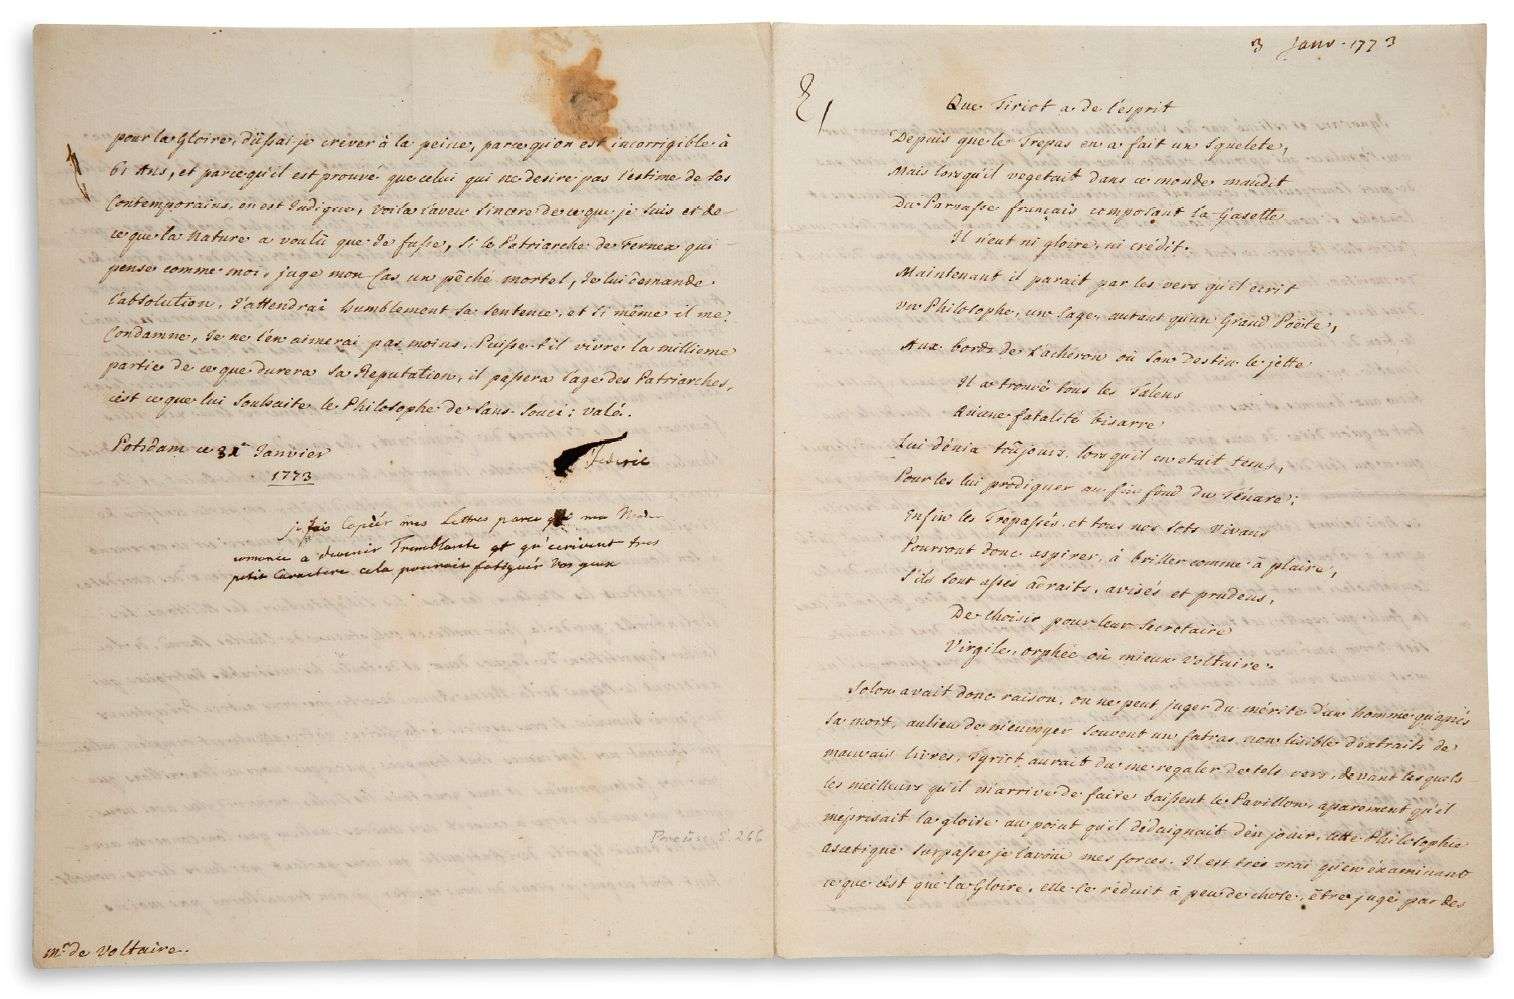 3 Janv. 1773
Que Tiriot a de l'esprit
Depuis que le Trepas en a fait un Squelete,
Mais lorsqu'il vegetait dans ce monde maudit
Du Parnasse français composant la Gasette
Il n'eut ni gloire, ni credit.
Maintenant il parait par les vers qu'il ecrit
un Philosophe, un Sage, autant qu'un Grand Poëte,
Aux bords de Lacheron où son Destin le jette
Il a trouvé tous les Talens
Qu'une fatalité bisarre
Lui dénia toûjours, lorsqu'il en etait tems,
Pour les lui prodiguer au fin fond du Ténare;
Enfin les Trepassés, et tous nos sots Vivans
Pourront donc aspirer, à briller comme à plaire,
S'ils sont asses adraits, avisés et prudens,
De choisir pour leur Secretaire
Virgile, orphée où mieux Voltaire.
Solon avait donc raison, on ne peut juger du mérite d'un homme qu'aprés
sa mort, aulieu de m'envoyer souvent un fatras non lisible d'extraits de
mauvais livres, Tyriot aurait du me regaler de tels vers, devant lesquels
les meilleurs qu'il m'arrive de faire baissent le Pavillon, aparement qu'il
méprisait la gloire au point qu'il dédaignait d'en jouir, cette Philosophie
ascetique surpasse je l'avoüe mes forces. Il est trés vrai qu'en éxaminant
ce que c'est que la Gloire, elle se réduit à peu de chose, être jugé par des
pour la Gloire, dûssai-je crever à la peine, parce qu'on est incorrigible à
61 Ans, et parce qu'il est prouvé que celui qui ne desire pas l'estime de ses
Contemporains en est Indigne, voila l'aveu sincere de ce que je suis et de
ce que la Nature a voulû que je fusse, Si le Patriarche de Fernea qui
pense comme moi, juge mon Cas un pêché mortel, Je lui demande
l'absolution, J'attendrai humblement sa sentence, et si même il me
Condamne, Je ne l'en aimerai pas moins. Puisse-t'il vivre la millieme
partie de ce que durera sa Reputation, il passera l'age des Patriarches,
c'est ce que lui souhaite le Philosophe de Sans-Souci: valé.
Potsdam ce Janvier
1773
Federic
je fais Copiér mes Lettres parce que ma
comence a devenir Tremblante et qu'ecrivent tres
petit Caractere cela pourait fatiguér Vos yeux
266
mr. de Voltaire.